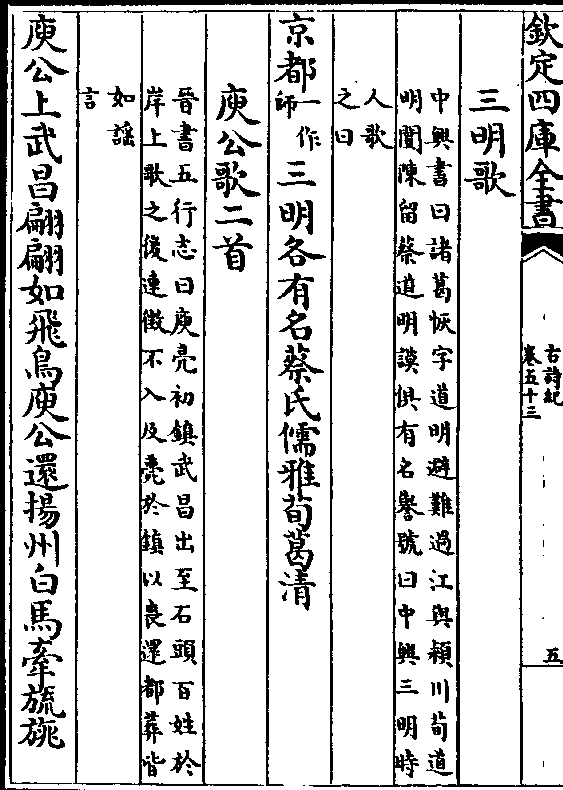 欽定四庫全書
古詩紀
卷五十三
五
三明歌
中興書曰諸葛恢字道明避難過江與潁川荀道
明闓陳留蔡道明謨俱有名譽號曰中興三明時
人歌
之曰
京都一作師三明各有名蔡氏儒雅荀葛清
庾公歌二首
晉書五行志曰庾亮初鎮武昌出至石頭百姓於
岸上歌之後連徵不入及薨於鎮以喪還都葬皆
如謡
言
庾公上武昌翩翩如飛鳥庾公還揚州白馬牽旒旐